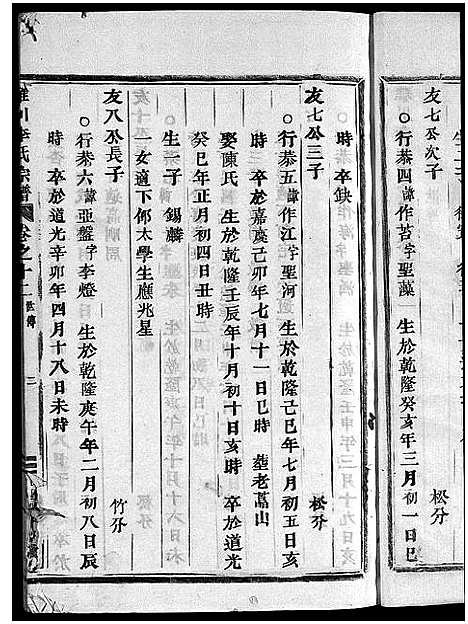 友七公次子
松分
行恭四諱作苫字聖藻 生於乾隆癸亥年三月初一日巳
時 卒缺
友七公三子
松分
行恭五諱作江字聖河 生於乾隆己巳年七月初五日亥
時 卒於嘉慶己卯年七月十一日巳時 塟老蒿山
娶陳氏 生於乾隆壬辰年十月初十日亥時 卒於道光
癸巳年正月初四日丑時
生一子 錫麟
一女適下邳太學生應兆星
友八公長子
竹分
行恭六諱亞盤字李燈 生於乾隆庚午年二月初八日辰
時 卒於道光辛卯年四月十八日未時
李氏宗譜 卷之十二 世傳 三